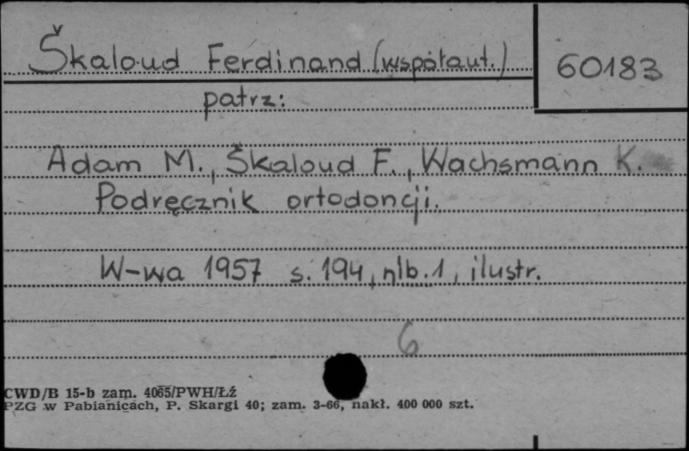 Škaloud Ferdinand (współaut.)
60183
patrz:
Adam M., Škaloud F., Wachsmann K.
Podręcznik ortodoncji.
W-wa 1957 s. 194, nlb. 1, ilustr.
6
CWD/B 15-b zam. 4065/PWH/Łź
PZG w Pabianicach, P. Skargi 40; zam. 3-66, nakł. 400 000 szt.